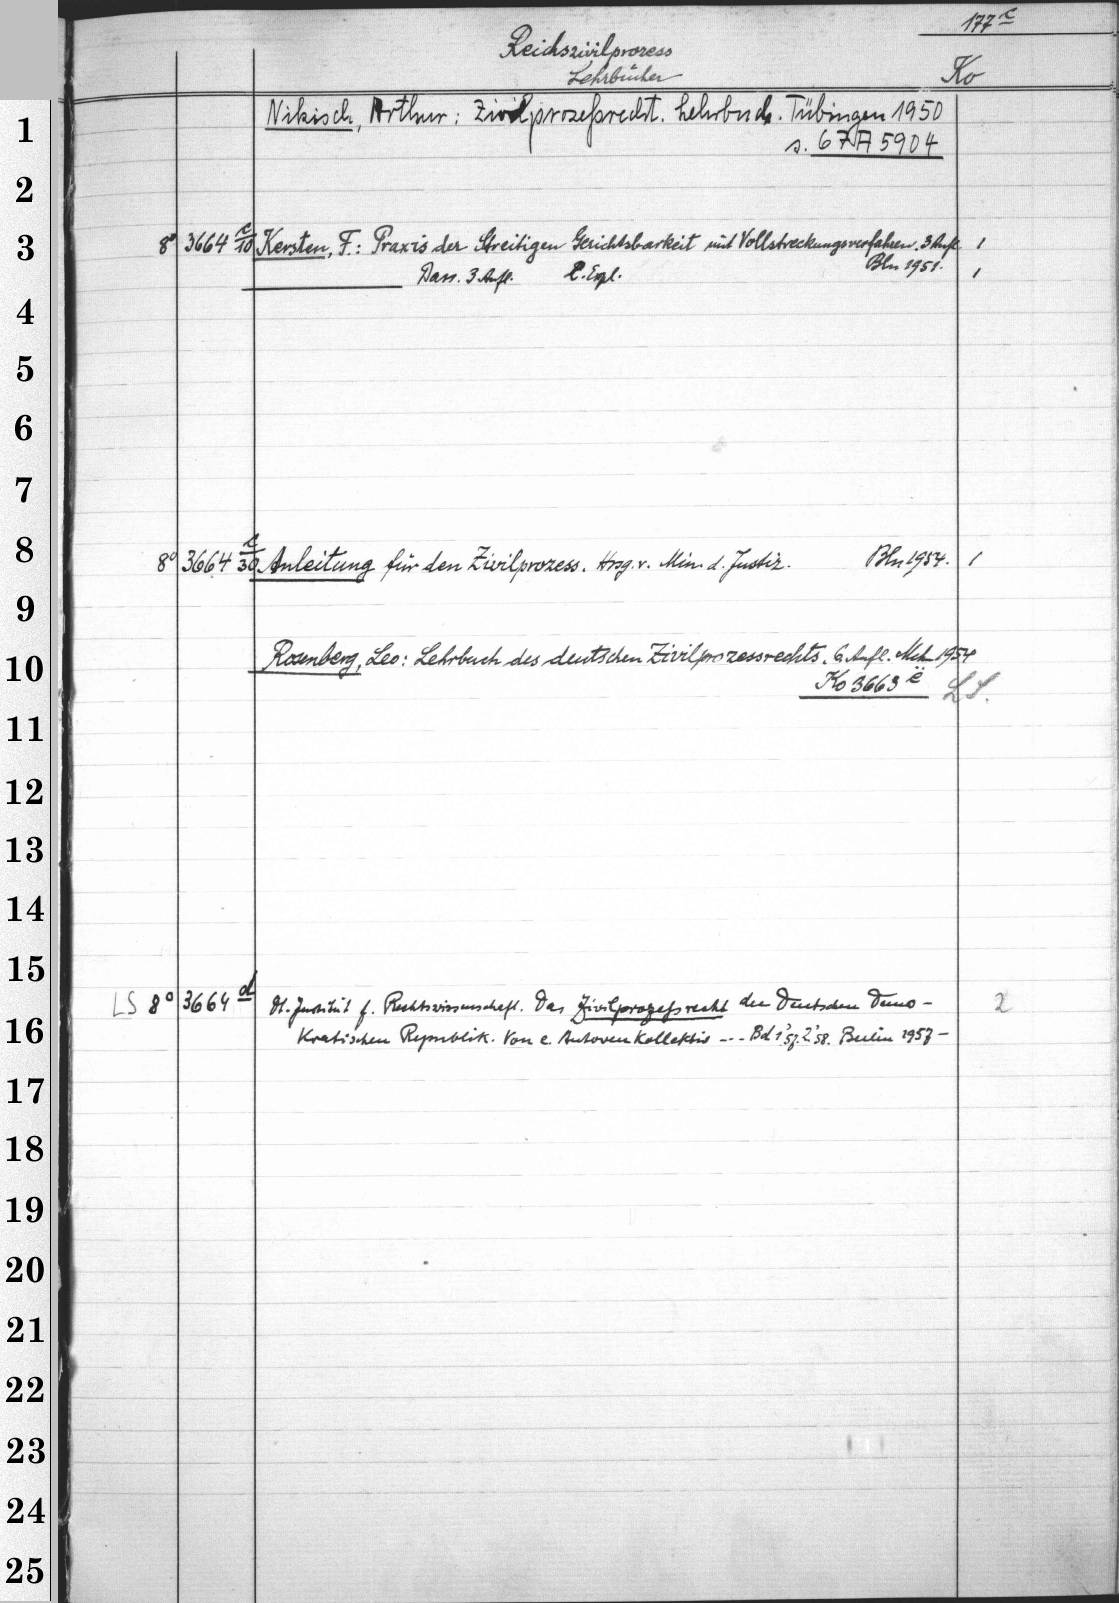 177 c
Reichszivilprozess
Lehrbücher
Ko
1
Nikisch, Arthur: Zivilprozeßrecht. Lehrbuch. Tübingen 1950
s. 67 A 5904
2
3
8° 3664 c/10 Kersten, F.: Praxis der Streitigen Gerichtsbarkeit mit Vollstreckungsverfahren. 3 Aufl. 1
Bln 1951.
Dass. 3 Aufl. 2. Expl. 1
4
5
6
7
8
8° 3664 c/30 Anleitung für den Zivilprozess. Hrsg. v. Min. d. Justiz. Bln 1954. 1
9
10
Rosenberg, Leo: Lehrbuch des deutschen Zivilprozessrechts. 6. Aufl. Mch 1954
Ko 3663 e LS.
11
12
13
14
15
LS 8° 3664 d Dt. Institut f. Rechtswissenschaft. Das Zivilprozeßrecht der Deutschen Demo- 2
16
kratischen Republik. Von e. Autorenkollektiv --- Bd 1'57. 2'58. Berlin 1957-
17
18
19
20
21
22
23
24
25